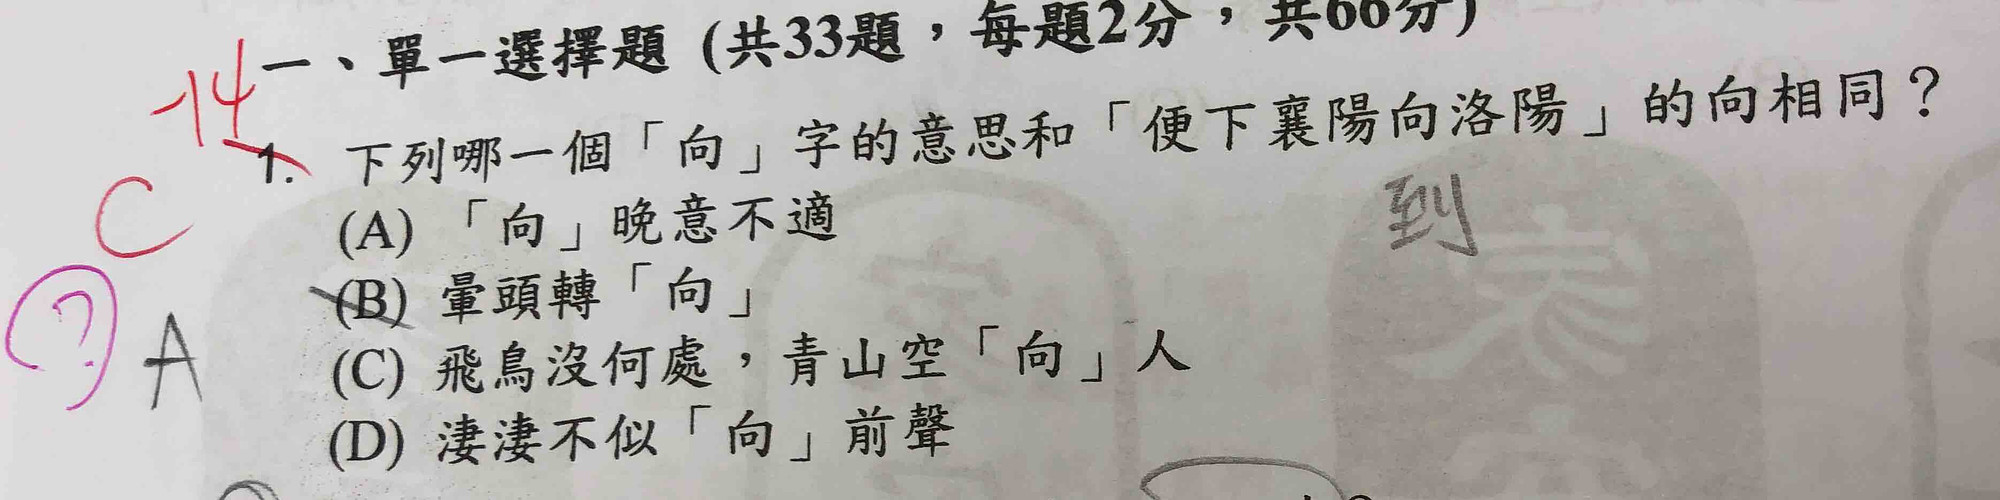 一、單一選擇題 (共33題，每題2分，共66分)
-14
1. 下列哪一個「向」字的意思和「便下襄陽向洛陽」的向相同？
到
C
(A) 「向」晚意不適
(B) 暈頭轉「向」
? A
(C) 飛鳥沒何處，青山空「向」人
(D) 淒淒不似「向」前聲